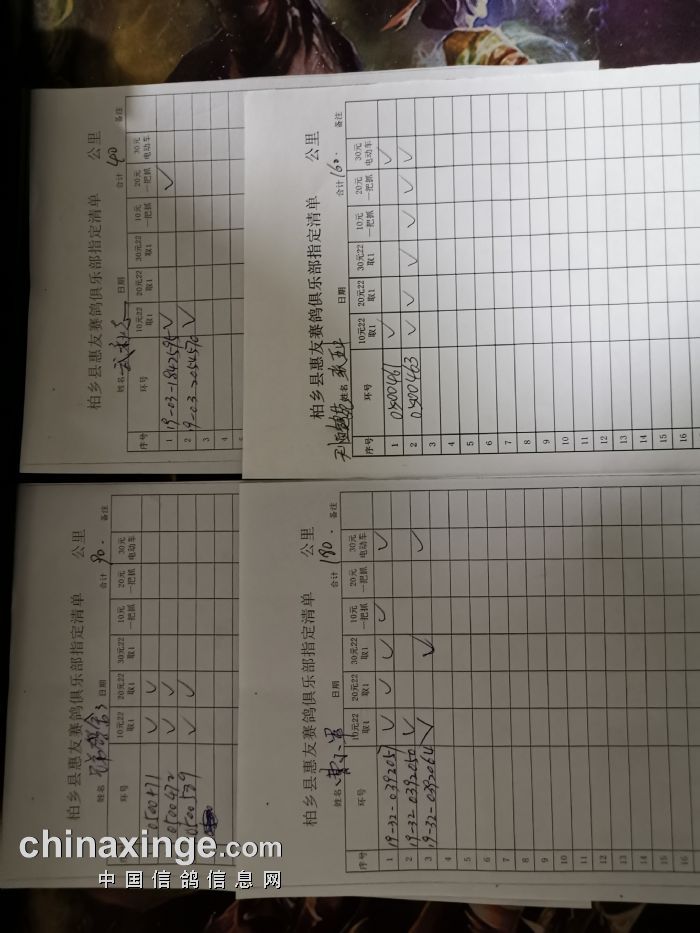 柏乡县惠友赛鸽俱乐部指定清单 公里
姓名 日期 合计 400 备注
序号 环号 10元22取1 20元22取1 30元22取1 10元一把抓 20元一把抓 30元电动车
1 19-03-1842595 ✓ ✓
2 19-03-2054570 ✓
3
4
柏乡县惠友赛鸽俱乐部指定清单 公里
姓名 日期 合计 160. 备注
序号 环号 10元22取1 20元22取1 30元22取1 10元一把抓 20元一把抓 30元电动车
1 0500461 ✓ ✓
2 0500463 ✓ ✓ ✓ ✓ ✓ ✓
3
4
5
6
7
8
9
10
11
12
13
14
15
16
柏乡县惠友赛鸽俱乐部指定清单 公里
姓名 日期 合计 90. 备注
环号 10元22取1 20元22取1 30元22取1 10元一把抓 20元一把抓 30元电动车
0500411 ✓ ✓
0500472 ✓ ✓
0500529 ✓ ✓
柏乡县惠友赛鸽俱乐部指定清单 公里
姓名 曹小军 日期 合计 190. 备注
序号 环号 10元22取1 20元22取1 30元22取1 10元一把抓 20元一把抓 30元电动车
1 19-32-0392051 ✓ ✓ ✓ ✓ ✓
2 19-32-0392050 ✓
3 19-32-0392064 ✓ ✓ ✓
4
5
6
7
8
9
10
11
12
13
14
15
16
chinaxinge.com
中国信鸽信息网